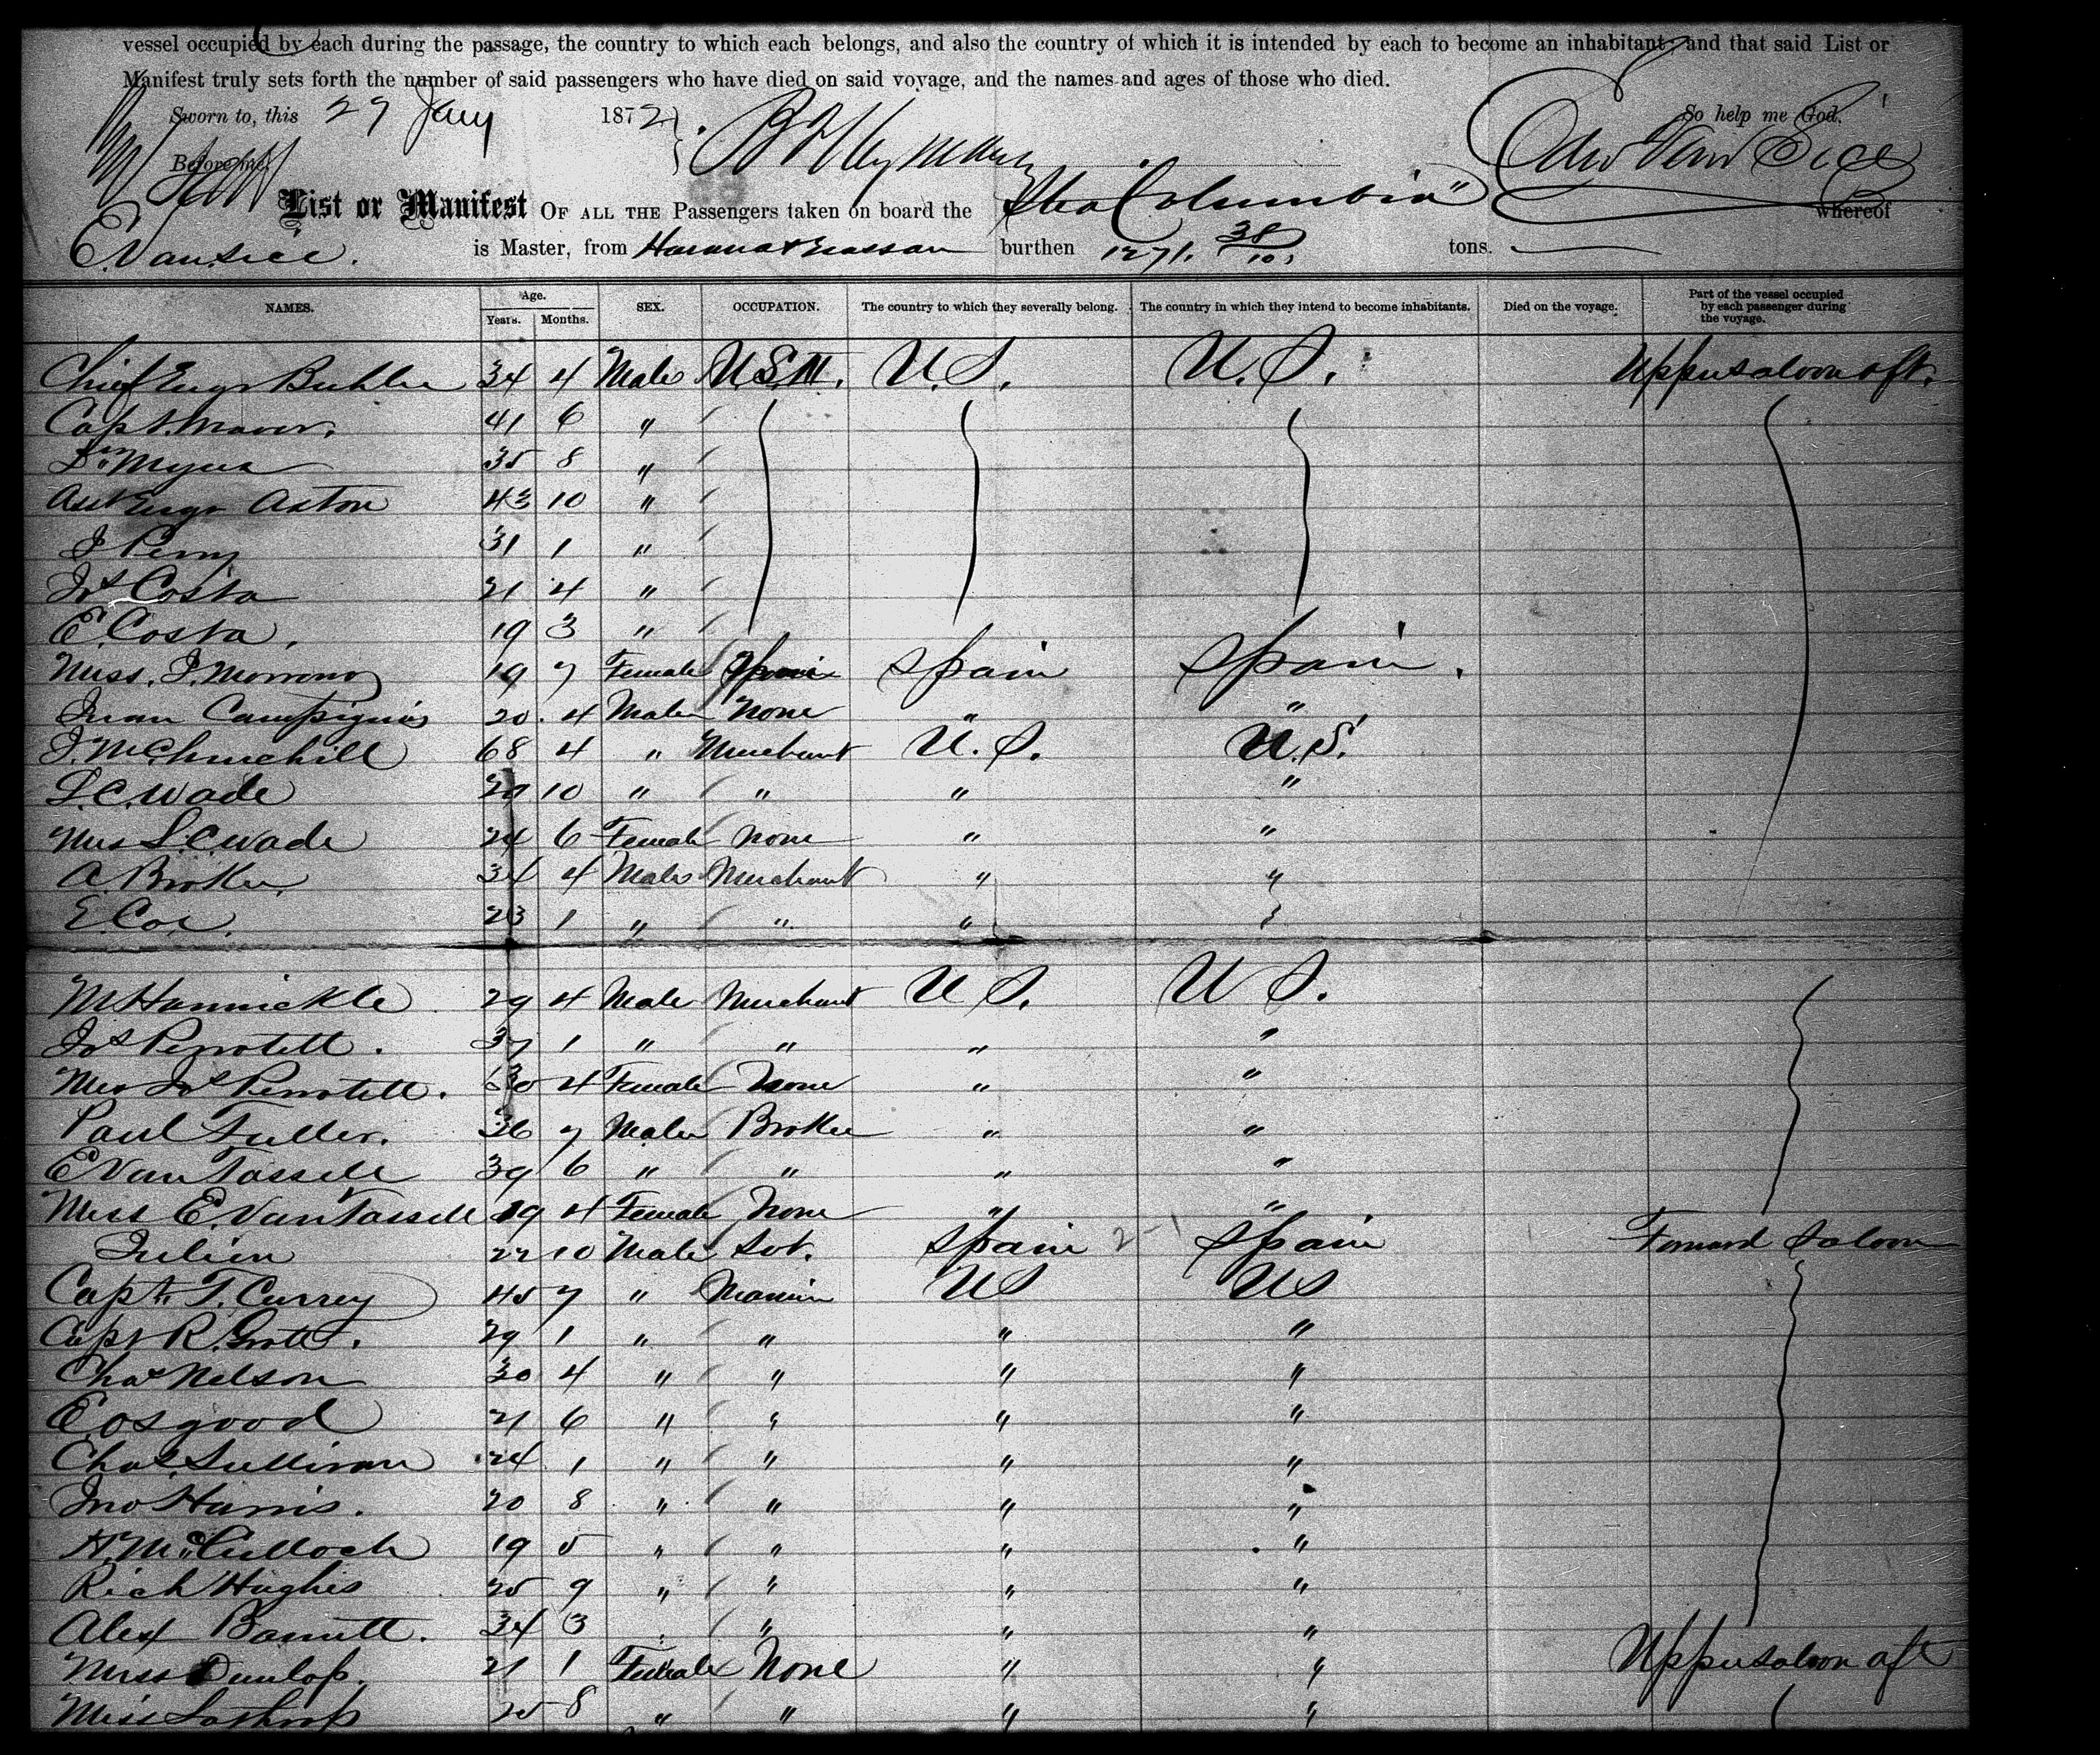 vessel occupied by each during the passage, the country to which each belongs, and also the country of which it is intended by each to become an inhabitant, and that said List or
Manifest truly sets forth the number of said passengers who have died on said voyage, and the names and ages of those who died.
Sworn to, this 29 Jany 1872 So help me God.
Before me,
List or Manifest OF ALL THE Passengers taken on board the Columbia" whereof
is Master, from Havana & Nassau burthen 1271. tons.
NAMES. Age. Years. Months. SEX. OCCUPATION. The country to which they severally belong. The country in which they intend to become inhabitants. Died on the voyage. Part of the vessel occupied by each passenger during the voyage.
Chief Engr Buhler 34 4 Male U.S. U.S. Upper saloon aft.
Capt. 41 6 "
Dr. Myers 35 8 "
Asst Engr Aston 43 10 "
J Perry 31 1 "
Jos Costa 21 4 "
E. Costa, 19 3 "
Miss. J. Morrono 19 7 Female Spain Spain.
Juan 20. 4 Male None " "
J. McChurchill 68 4 " Merchant U.S. U.S.
L.C. Wade 10 " " " "
Mrs L.C. Wade 24 6 Female None " "
A. Broker 34 4 Male Merchant " "
E. Cox. 23 1 " " " "
M Hannickle 29 4 Male Merchant U S. U S.
Jos Perrotett. 37 1 " " " "
Mrs Jos Perrotett. 30 4 Female None " "
Paul Fuller. 36 7 Male Broker " "
E Van Tassell 39 6 " " " "
Miss E. Van Tassell 19 4 Female None " "
Julien 22 10 Male Svt. Spain 2-1 Spain Forward Saloon
Capt. T. Currey 45 7 " Marine US US
Capt R. Grott. 29 1 " " " "
Chas Nelson 30 4 " " " "
E. Osgood 21 6 " " " "
Chas. Sullivan 24 1 " " " "
Jno Harris. 20 8 " " " "
H. McCulloch 19 5 " " " "
Rich Hughes 25 9 " " " "
Alex Barnett. 34 3 " " "
Miss Dunlop. 21 1 Female None " " Upper saloon aft
Miss Lothrop 25 8 " " " "